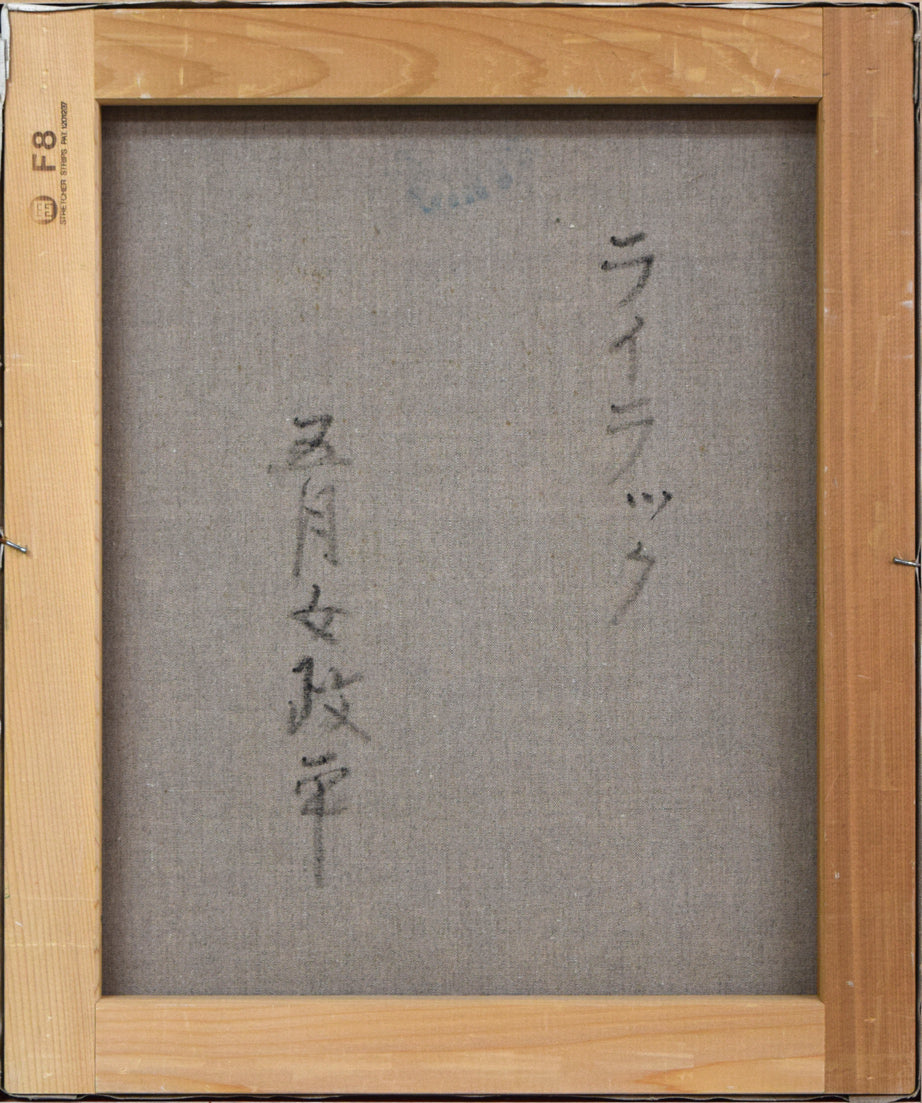 ライラック
五月女政平
F8
STRETCHER STRIPS PAT.1201207